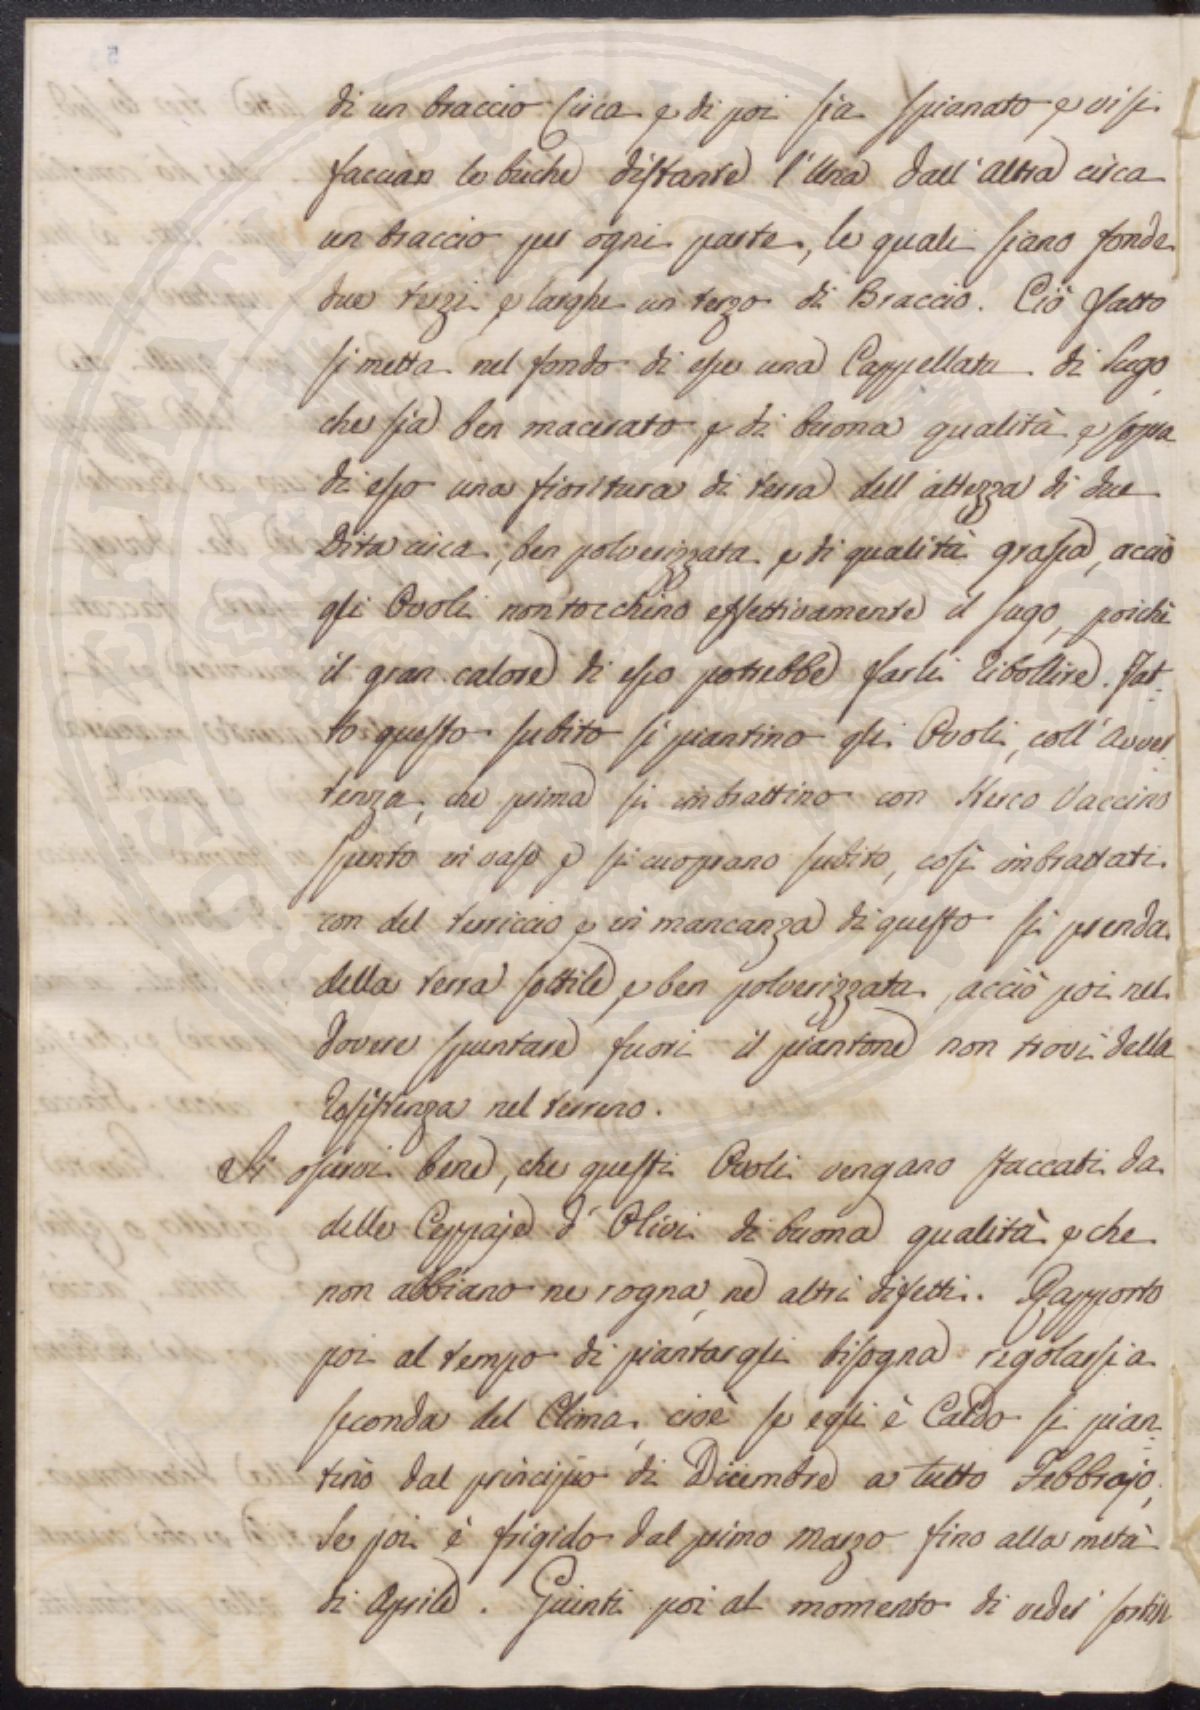 di un braccio Circa e di poi sia spianato, e vi si
faccian le buche distante l'Una dall'altra circa
un braccio per ogni parte, le quali siano fonde
due terzi, e larghe un terzo di Braccio. Ciò fatto
si metta nel fondo di esse una Cappellata di Sugo,
che sia ben macerato, e di buona qualità, e sopra
di esso una fioritura di terra dell'altezza di due
Dita circa, ben polverizzata, e di qualità grassa, acciò
gli Ovoli non tocchino effettivamente il sugo, poichè
il gran calore di esso potrebbe farli ribollire. Fat-
to questo subito si piantino gli Ovoli, coll'Avver-
tenza, che prima si imbrattino con Sterco Vaccino
spento in vaso e si cuoprano subito, così imbrattati
con del terriccio, e in mancanza di questo si prenda
della terra sottile, e ben polverizzata, acciò poi nel
dovere spuntare fuori il piantone non trovi della
resistenza nel terreno.
Si osservi bene, che questi Ovoli vengano staccati da
delle Ceppaje d'Olivi di buona qualità, e che
non abbiano ne rogna, ne altri difetti. Rapporto
poi al tempo di piantargli bisogna regolarsi a
seconda del Clima, cioè se egli è Caldo si pian-
tino dal principio di Dicembre a tutto Febbrajo,
Se poi è frigido dal primo Marzo fino alla metà
di Aprile. Giunti poi al momento di veder sortir